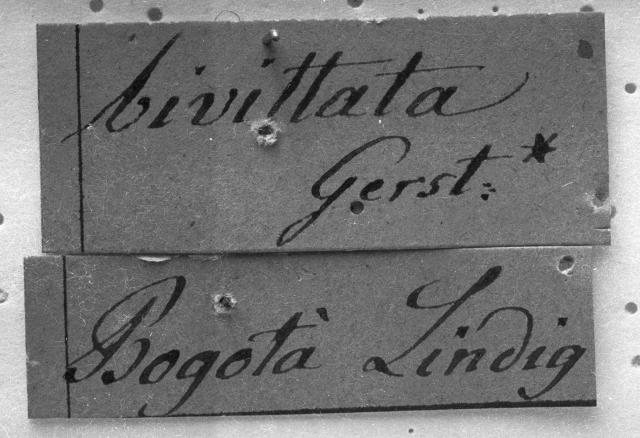 bivittata
Gerst: *
Bogotà Lindig